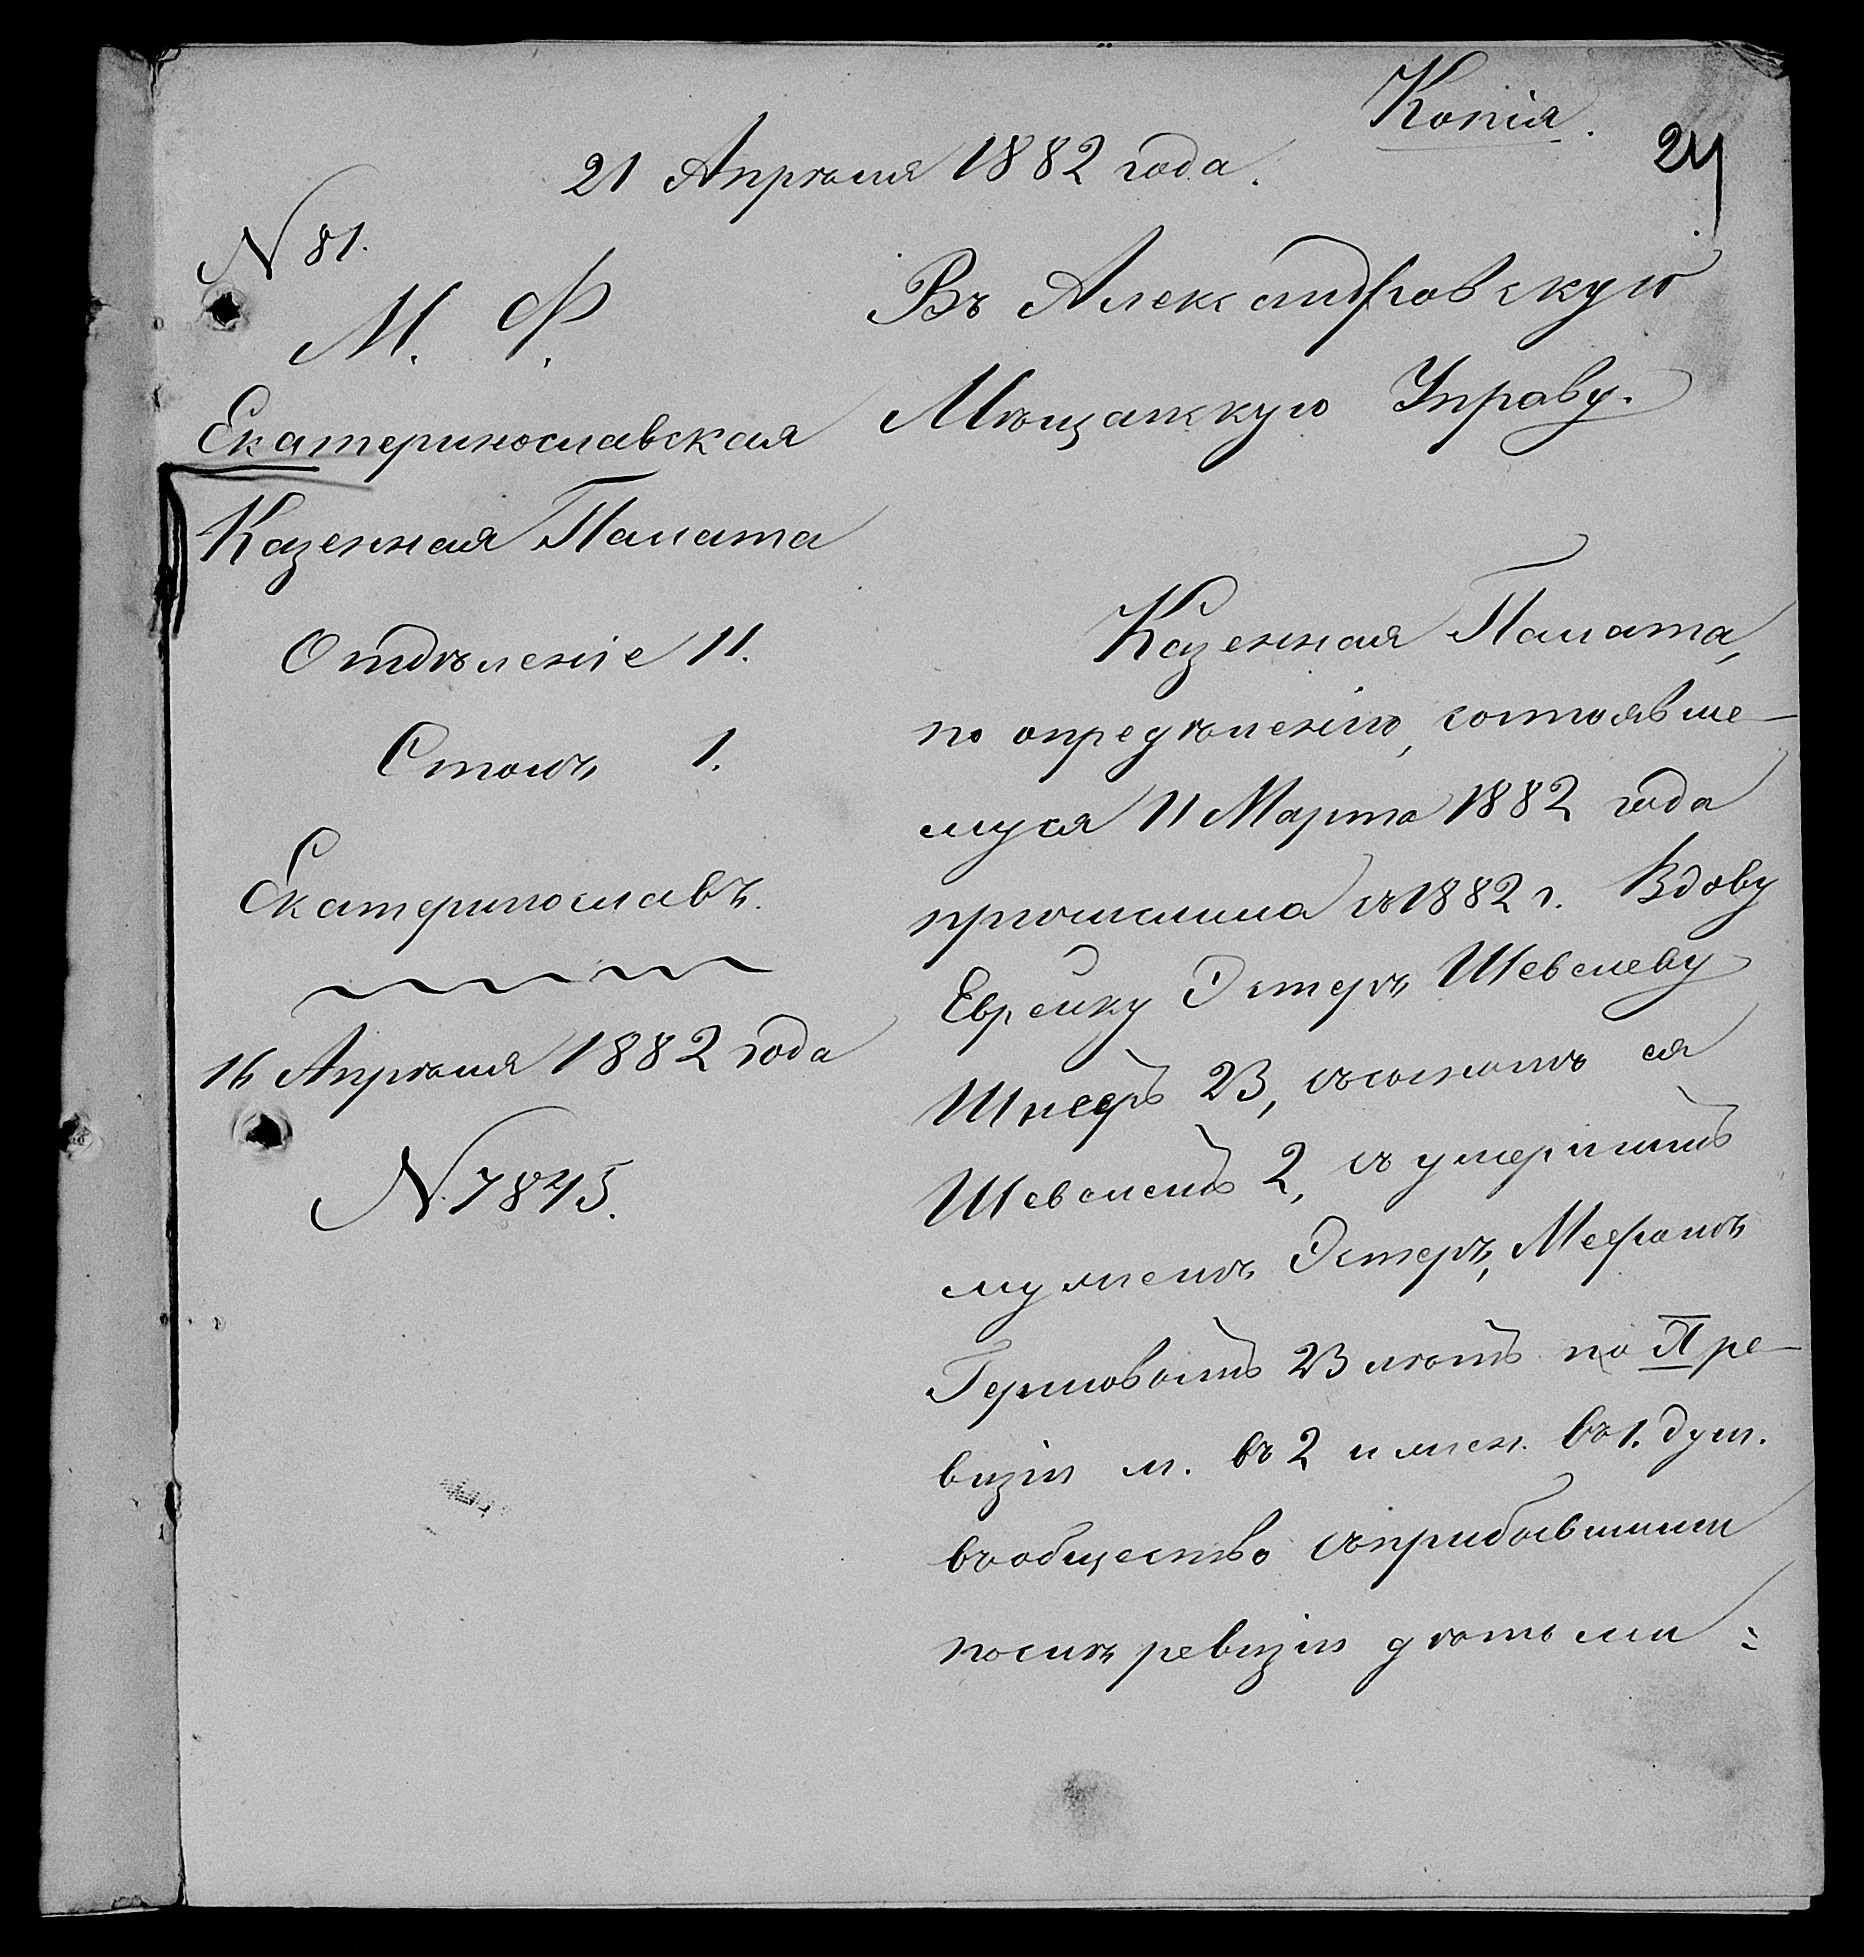 Копія.
24
21 Апрѣля 1882 года.
N 81.
М. Ф.
Екатеринославская
Казенная Палата
Отдѣленіе II.
Столъ 1.
Екатеринославъ.
16 Апрѣля 1882 года
N. 7845.
Въ Александровскую
Мѣщанскую Управу.
Казенная Палата,
по опредѣленію, состоявше-
муся 11 Марта 1882 года
причислила съ 1882 г. Вдову
Еврейку Эстеръ Шевелеву
23, съ сыномъ ея
Шевелемъ 2, съ умершимъ
мужемъ Эстеръ,
23 лѣтъ по ре-
визіи м. въ 2 и жен. въ 1. душ.
въ общество съ прибывшими
послѣ ревизіи дѣтьми: